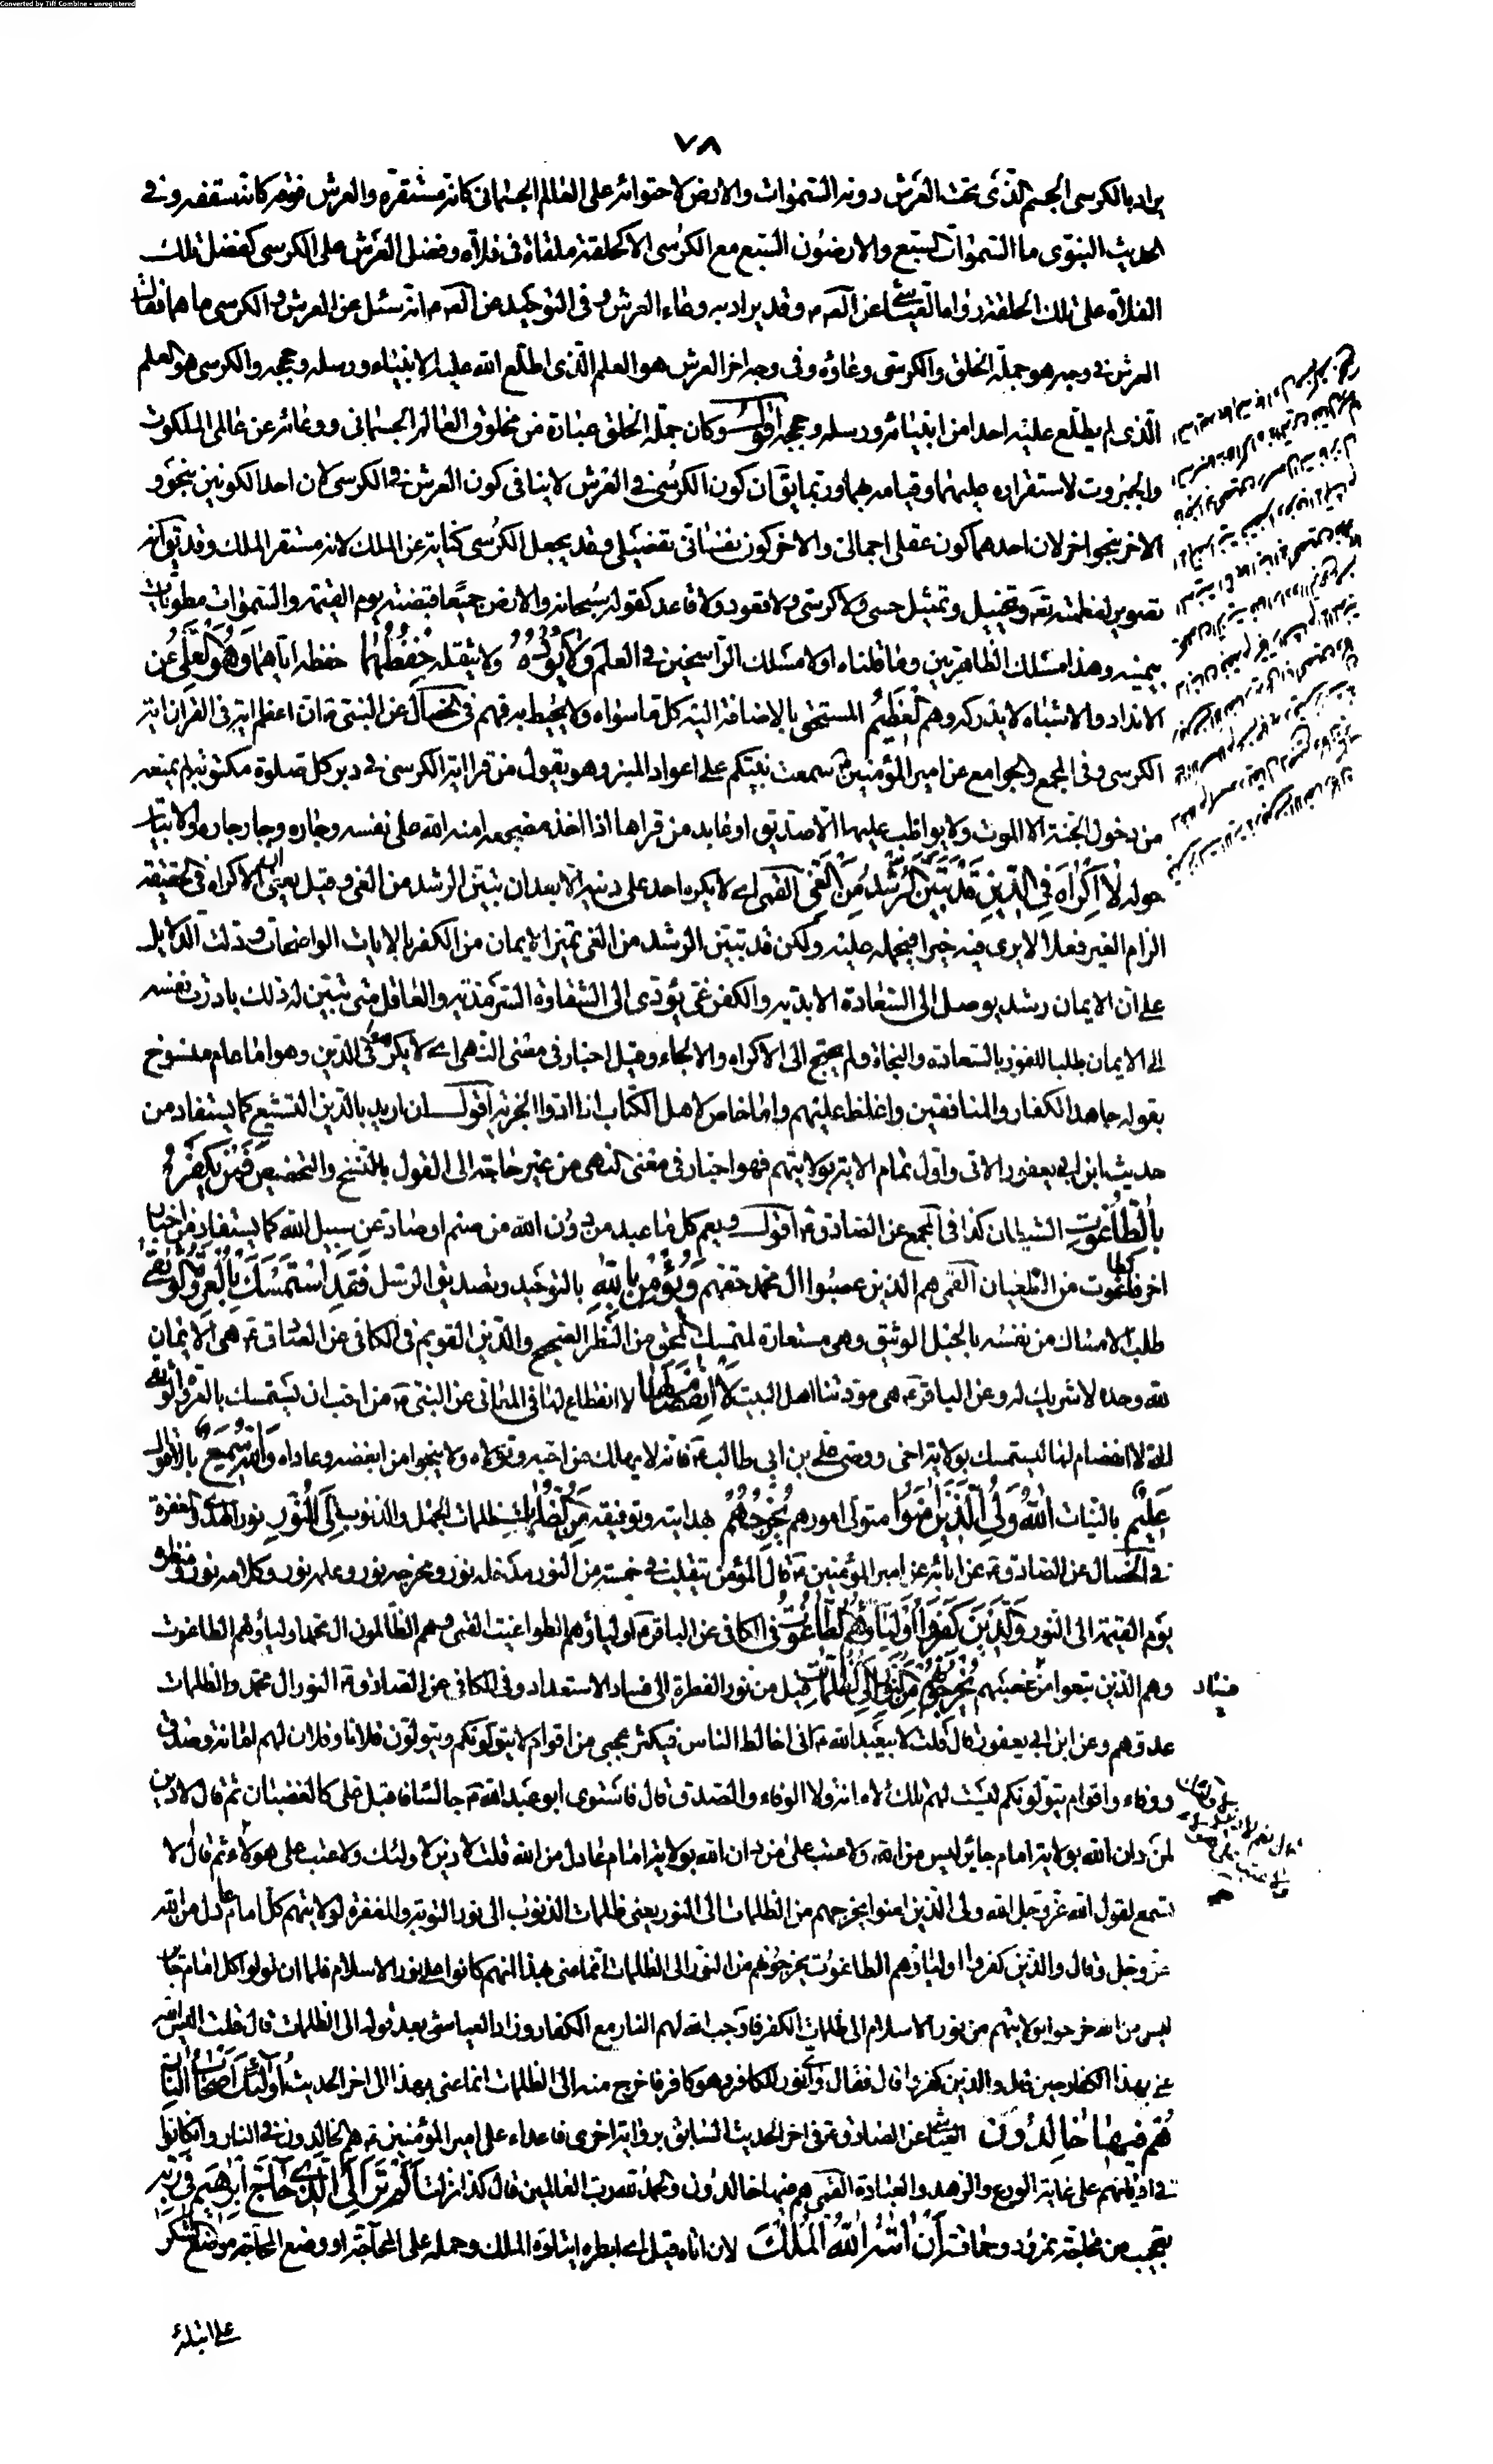 Converted by Tiff Combine - unregistered
٧٨
يراد بالكرسى الجسم الذى تحت العرش دونه السموات والارض لاحتوائه على العالم الجسمانى كانه مستقره والعرش فوقه كانه سقفه وفى
الحديث النبوى ما السموات السبع والارضون السبع مع الكرسى الا كحلقة ملقاة فى فلاة وفضل العرش على الكرسى كفضل تلك
الفلاة على تلك الحلقة رواها العياشى عن الص م وقد يراد به وعاء العرش وفى التوحيد عن الص م انه سئل عن العرش والكرسى ما هما فقال
العرش فى وجه هو جملة الخلق والكرسى وعاؤه وفى وجه اخر العرش هو العلم الذى اطلع الله عليه الانبياء ورسله وحججه والكرسى هو العلم
الذى لم يطلع عليه احدا من انبيائه ورسله وحججه اقول وكان جملة الخلق عبارة من مخلوق العالم الجسمانى ووعائه عن عالمى الملكوت
والجبروت لاستقراره عليهما وقيامه بهما وربما يق ان كون الكرسى فى العرش لا ينافى كون العرش فى الكرسى لان احد الكونين بنحو و
الاخر بنحو اخر لان احدهما كون عقلى اجمالى والاخر كون نفسانى تفضيلى وقد يجعل الكرسى كناية عن الملك لانه مستقر الملك وقد يق انه
تصوير لعظمته تع وتخييل وتمثيل حسى ولا كرسى ولا قعود ولا قاعد كقوله سبحانه والارض جميعا قبضته يوم القيمة والسموات مطويات
بيمينه وهذا مسلك الظاهريين وما قلناه اولا مسلك الراسخين فى العلم وَلا يَؤُدُهُ ولا يثقله حِفْظُهُما حفظه اياهما وَهُوَ الْعَلِىُّ عن
الانداد والاشباه لا يدركه وهم الْعَظِيمُ المستحق بالاضافة اليه كل ما سواه ولا يحيط به فهم فى الخصال عن النبى ص ان اعظم اية فى القران اية
الكرسى وفى المجمع والجوامع عن امير المؤمنين م سمعت نبيكم على اعواد المنبر وهو يقول من قرا اية الكرسى فى دبر كل صلوة مكتوبة لم يمنعه
من دخول الجنة الا الموت ولا يواظب عليها الا صديق او عابد من قراها اذا اخذ مضجعه امنه الله على نفسه وجاره وجار جاره والابيات
حوله لا اِكْراهَ فِى الدِّينِ قَدْ تَبَيَّنَ الرُّشْدُ مِنَ الْغَىِّ القمى اى لا يكره احد على دينه الا بعد ان تبين الرشد من الغى وقيل يعنى ان الاكراه فى الحقيقة
الزام الغير فعلا لا يرى فيه خيرا فيحمله عليه ولكن قد تبين الرشد من الغى تميز الايمان من الكفر بالايات الواضحات ودلت الدلايل
على ان الايمان رشد يوصل الى السعادة الابدية والكفر غى يؤدى الى الشقاوة السرمدية والعاقل متى تبين له ذلك بادرت نفسه
الى الايمان طلبا للفوز بالسعادة والنجاة ولم يحتج الى الاكراه والالجاء وقيل اخبار فى معنى النهى اى لا يكرهوا فى الدين وهو اما عام منسوخ
بقوله جاهد الكفار والمنافقين واغلظ عليهم واما خاص لاهل الكتاب اذا ادوا الجزية اقول ان اريد بالدين التشيع كما يستفاد من
حديث ابن ابى يعفور الاتى واول تمام الاية بولايتهم فهو اخبار فى معنى النهى من غير حاجة الى القول بالنسخ والتخصيص فَمَنْ يَكْفُرْ
بِالطَّاغُوتِ الشيطان كذا فى المجمع عن الصادق م اقول ويعم كل ما عبد من دون الله من صنم او صاد عن سبيل الله كما يستفاد من اخبار
اخر فالطاغوت من الطغيان القمى هم الذين غصبوا ال محمد حقهم وَيُؤْمِنْ بِاللهِ بالتوحيد وتصديق الرسل فَقَدِ اسْتَمْسَكَ بِالْعُرْوَةِ الْوُثْقى
طلب الامساك من نفسه بالحبل الوثيق وهى مستعارة لمتمسك المحق من النظر الصحيح والدين القويم فى الكافى عن الصادق م هى الايمان
لله وحده لا شريك له وعن الباقر م هى مودتنا اهل البيت لَا انْفِصامَ لَها لا انقطاع لها فى المعانى عن النبى ص من احب ان يستمسك بالعروة الوثقى
التى لا انفصام لها ليستمسك بولاية اخى ووصى على بن ابى طالب م فانه لا يهلك من احبه وتولاه ولا ينجو من ابغضه وعاداه وَاللهُ سَمِيعٌ بالاقوال
عَلِيمٌ بالنيات اَللهُ وَلِىُّ الَّذِينَ امَنُوا متولى امورهم يُخْرِجُهُمْ بهدايته وتوفيقه مِنَ الظُّلُماتِ ظلمات الجهل والذنوب اِلَى النُّورِ نور الهدى والمغفرة
فى الخصال عن الصادق م عن ابائه عن امير المؤمنين م قال المؤمن يتقلب فى خمسة من النور مدخله نور ومخرجه نور وعلمه نور وكلامه نور ومنظره
يوم القيمة الى النور وَالَّذِينَ كَفَرُوا اَوْلِياؤُهُمُ الطَّاغُوتُ فى الكافى عن الباقر م اولياؤهم الطواغيت القمى وهم الظالمون ال محمد اولياؤهم الطاغوت
وهم الذين تبعوا من غصبهم يُخْرِجُونَهُمْ مِنَ النُّورِ اِلَى الظُّلُماتِ قيل من نور الفطرة الى فساد الاستعداد وفى الكافى عن الصادق م النور ال محمد والظلمات
عدوهم وعن ابن ابى يعفور قال قلت لابيعبد الله م انى اخالط الناس فيكثر عجبى من اقوام لا يتولونكم ويتولون فلانا وفلان لهم امانة وصدق
ووفاء واقوام يتولونكم ليست لهم تلك الامانة ولا الوفاء والصدق قال فاستوى ابو عبد الله م جالسا فاقبل على كالغضبان ثم قال لا دين
لمن دان الله بولاية امام جائر ليس من الله ولا عتب على من دان الله بولاية امام عادل من الله قلت لا دين لاولئك ولا عتب على هؤلاء ثم قال الا
تسمع لقول الله عز وجل الله ولى الذين امنوا يخرجهم من الظلمات الى النور يعنى ظلمات الذنوب الى نور التوبة والمغفرة لولايتهم كل امام عادل من الله
عز وجل وقال والذين كفروا اولياؤهم الطاغوت يخرجونهم من النور الى الظلمات انما عنى بهذا انهم كانوا على نور الاسلام فلما ان تولوا كل امام جائر
ليس من الله خرجوا بولايتهم من نور الاسلام الى ظلمات الكفر فاوجب الله لهم النار مع الكفار وزاد العياشى بعد قوله الى الظلمات قال قلت اليس الله
عنى بهذا الكفار حين قال والذين كفروا قال فقال واى نور للكافر وهو كافر فاخرج منه الى الظلمات انما عنى بهذا الى اخر الحديث اُولئِكَ اَصْحابُ النَّارِ
هُمْ فِيها خالِدُونَ العياشى عن الصادق م فى اخر الحديث السابق برواية اخرى فاعداء على امير المؤمنين م هم الخالدون فى النار وان كانوا
فى اديانهم على غاية الورع والزهد والعبادة القمى هم فيها خالدون والحمد لله رب العالمين قال كذا نزلت اَلَمْ تَرَ اِلَى الَّذِى حاجَّ اِبْرهِيمَ فِى رَبِّهِ
تعجب من محاجة نمرود وحماقته اَنْ اتيهُ اللهُ الْمُلْكَ لان اتاه قيل اى ابطره ايتاؤه الملك وحمله على المحاجة او وضع المحاجة موضع الشكر
فساد
على ايتائه